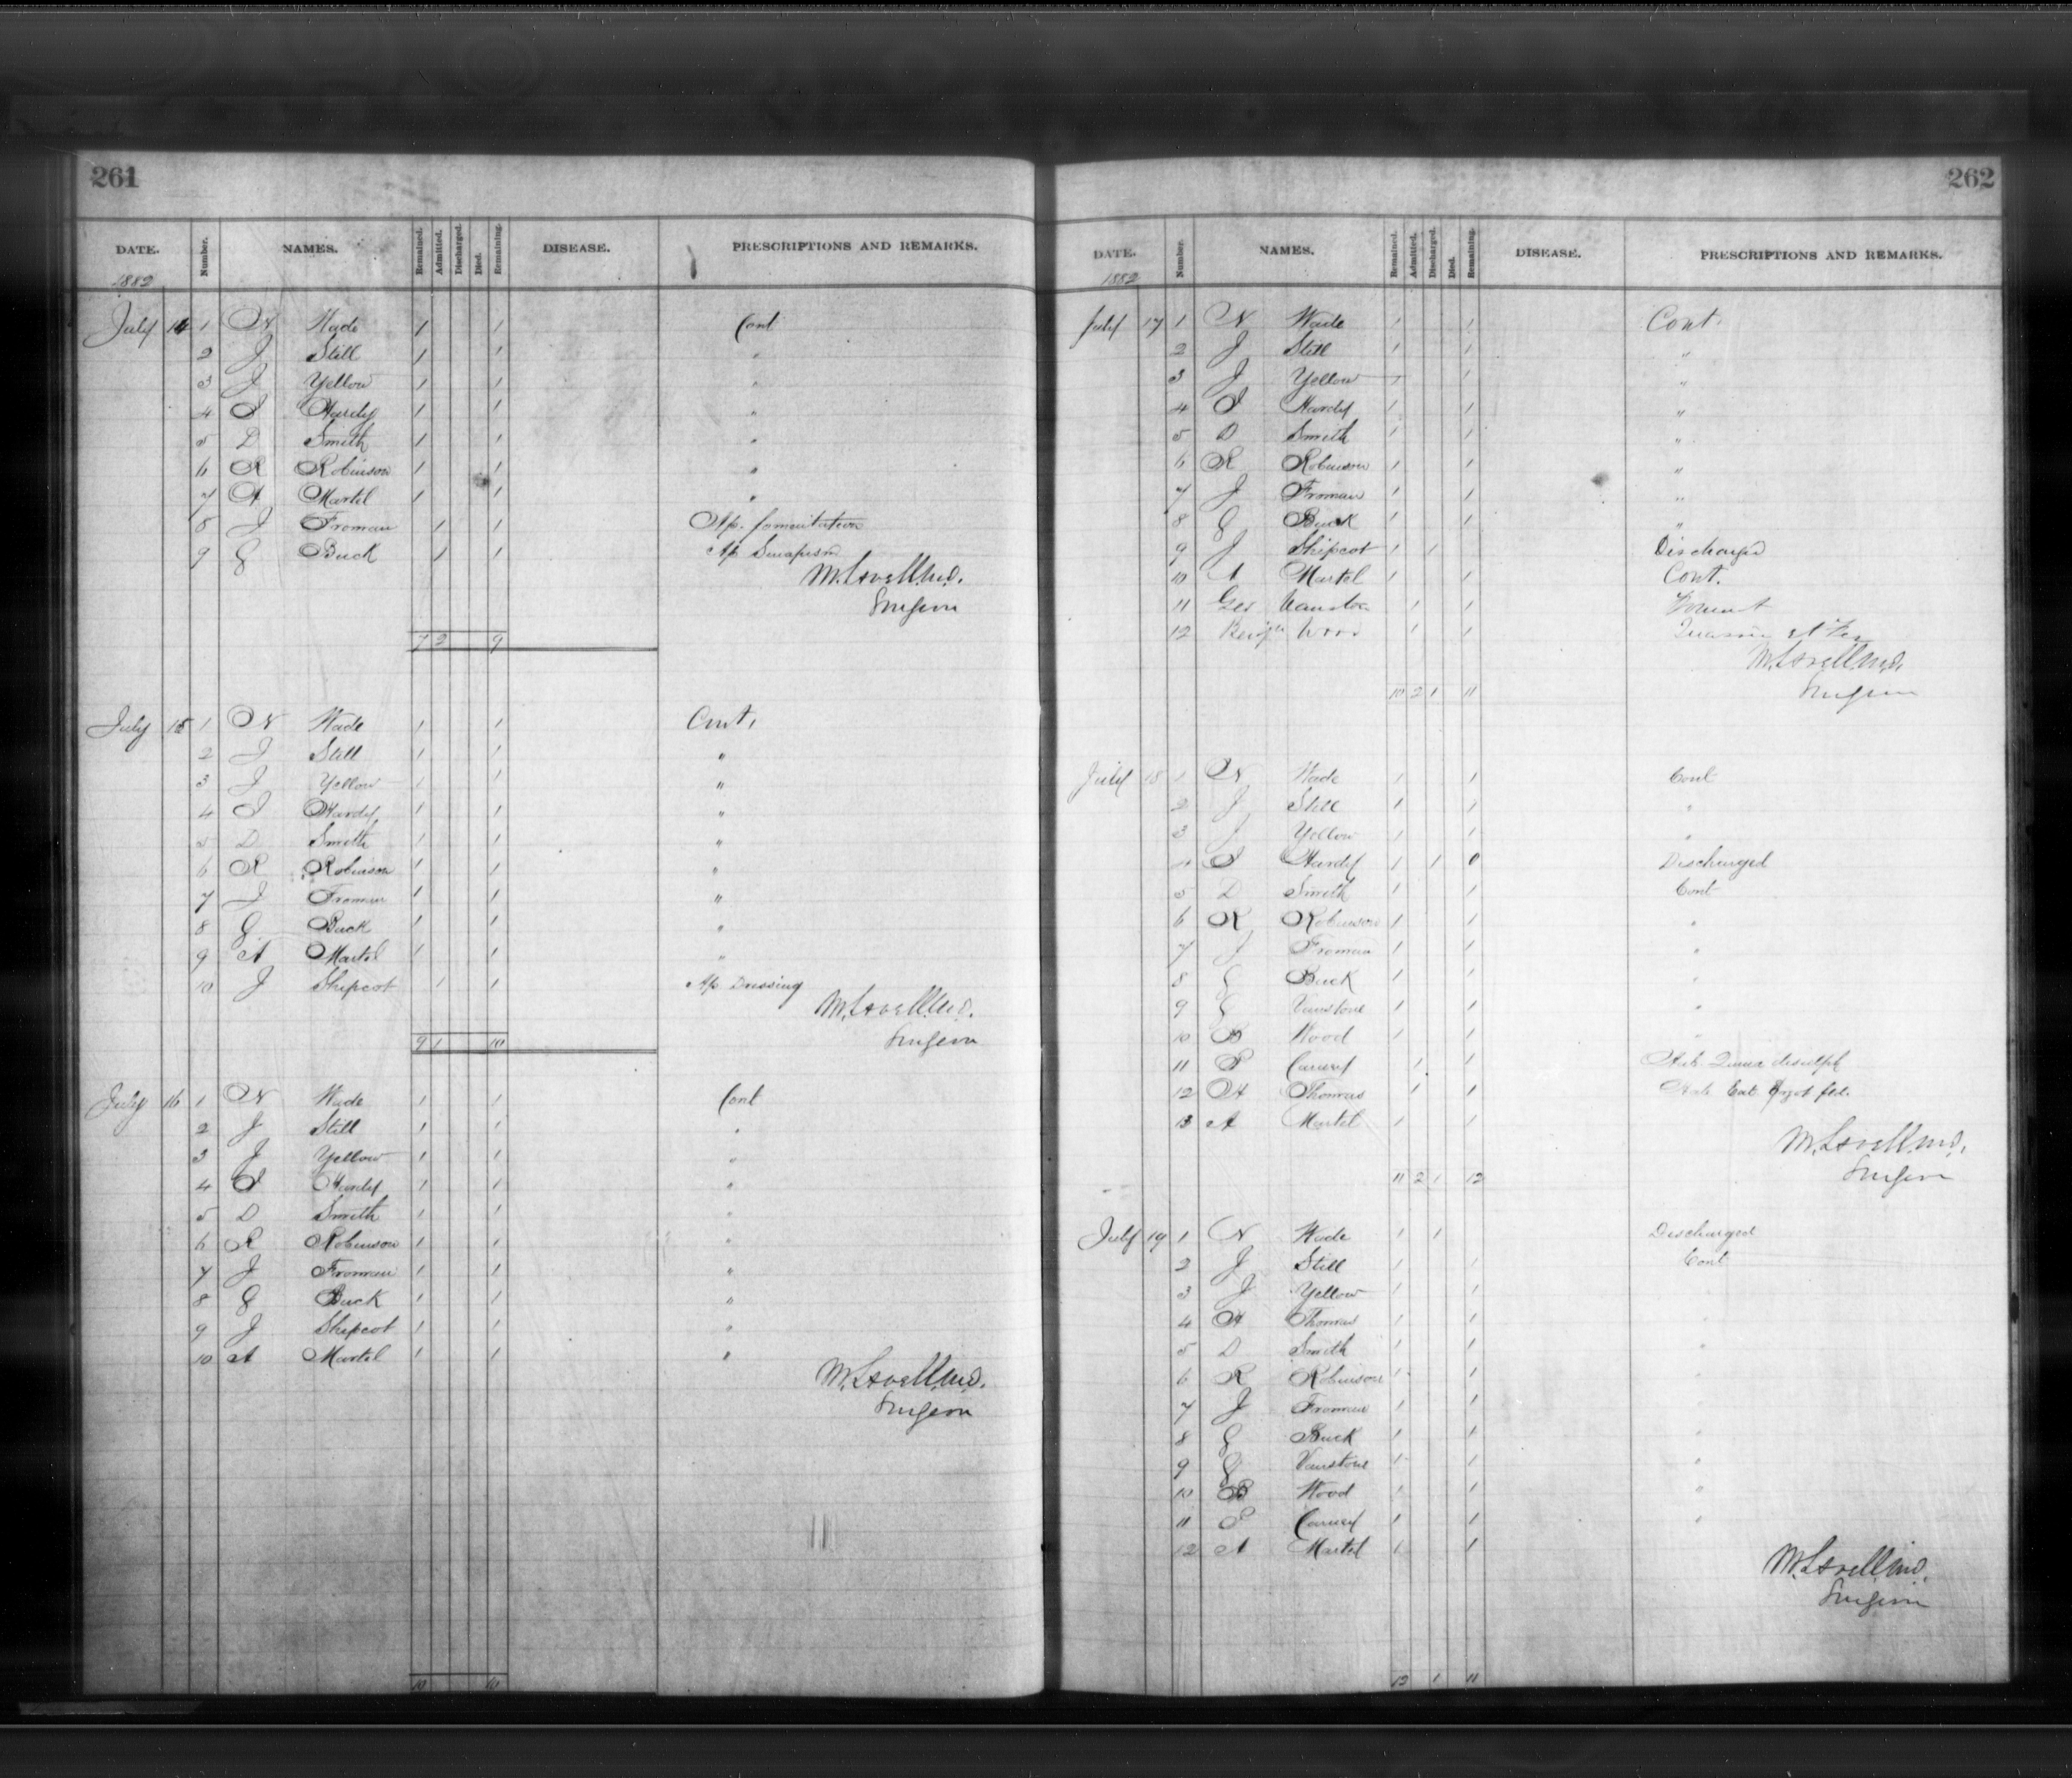 261
DATE. Number. NAMES. Remained. Admitted. Discharged. Died. Remaining. DISEASE. PRESCRIPTIONS AND REMARKS.
1882
July 14 1 N Wade 1 1 Cont
2 J Still 1 1 "
3 J Yellow 1 1 "
4 I Hardy 1 1 "
5 D Smith 1 1 "
6 R Robinson 1 1 "
7 A Martel 1 1 "
8 J Froman 1 1 Ap. fomentation
9 G Buck 1 1 Ap Sinapism
M. Lavell M.D.
Surgeon
7 2 9
July 15 1 N Wade 1 1 Cont.
2 J Still 1 1 "
3 J Yellow 1 1 "
4 I Hardy 1 1 "
5 D Smith 1 1 "
6 R Robinson 1 1 "
7 J Froman 1 1 "
8 G Buck 1 1 "
9 A Martel 1 1 "
10 J Shipcot 1 1 Ap Dressing
M. Lavell M.D.
Surgeon
9 1 10
July 16 1 N Wade 1 1 Cont
2 J Still 1 1 "
3 J Yellow 1 1 "
4 I Hardy 1 1 "
5 D Smith 1 1 "
6 R Robinson 1 1 "
7 J Froman 1 1 "
8 G Buck 1 1 "
9 J Shipcot 1 1 "
10 A Martel 1 1 "
M. Lavell M.D.
Surgeon
10 10
262
DATE. Number. NAMES. Remained. Admitted. Discharged. Died. Remaining. DISEASE. PRESCRIPTIONS AND REMARKS.
1882
July 17 1 N Wade 1 1 Cont.
2 J Still 1 1 "
3 J Yellow 1 1 "
4 I Hardy 1 1 "
5 D Smith 1 1 "
6 R Robinson 1 1 "
7 J Froman 1 1 "
8 G Buck 1 1 "
9 J Shipcot 1 1 Discharged
10 A Martel 1 1 Cont.
11 Geo 1 1
12 Wood 1 1
M. Lavell M.D.
Surgeon
10 2 1 11
July 18 1 N Wade 1 1 Cont
2 J Still 1 1 "
3 J Yellow 1 1 "
4 I Hardy 1 1 0 Discharged
5 D Smith 1 1 Cont
6 R Robinson 1 1 "
7 J Froman 1 1 "
8 G Buck 1 1 "
9 G Vanstone 1 1 "
10 B Wood 1 1 "
11 P Carney 1 1 disulph
12 H Thomas 1 1 Ext Ergot fld.
13 A Martel 1 1
M. Lavell M.D.
Surgeon
11 2 1 12
July 19 1 N Wade 1 1 Discharged
2 J Still 1 1 Cont
3 J Yellow 1 1
4 H Thomas 1 1 "
5 D Smith 1 1 "
6 R Robinson 1 1 "
7 J Froman 1 1 "
8 G Buck 1 1 "
9 G Vanstone 1 1 "
10 B Wood 1 1 "
11 P Carney 1 1 "
12 A Martel 1 1
M. Lavell M.D.
Surgeon
1 11